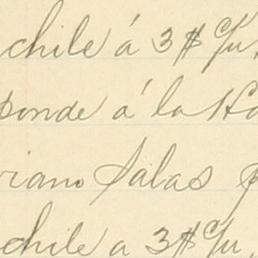 chile á 3 $
ponde á la
riano Salas
chile a 3 $